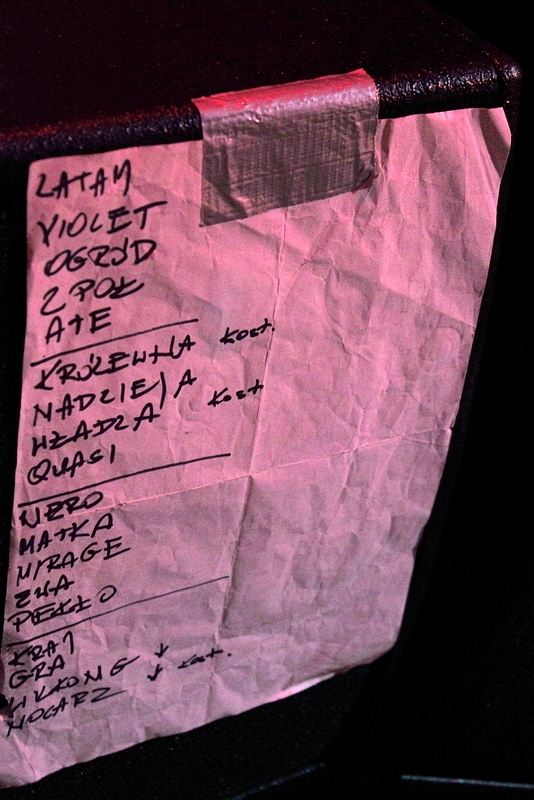 LATAM
VIOLET
OGRÓD
2 POŁ
ATE
KRÓLEWNA kost.
NADZIEJA
WŁADZA kost
QUASI
NERO
MATKA
MIRAGE
ZŁA
PIEKŁO
KRAJ
GRA
↓
MOCARZ ↓ kost.